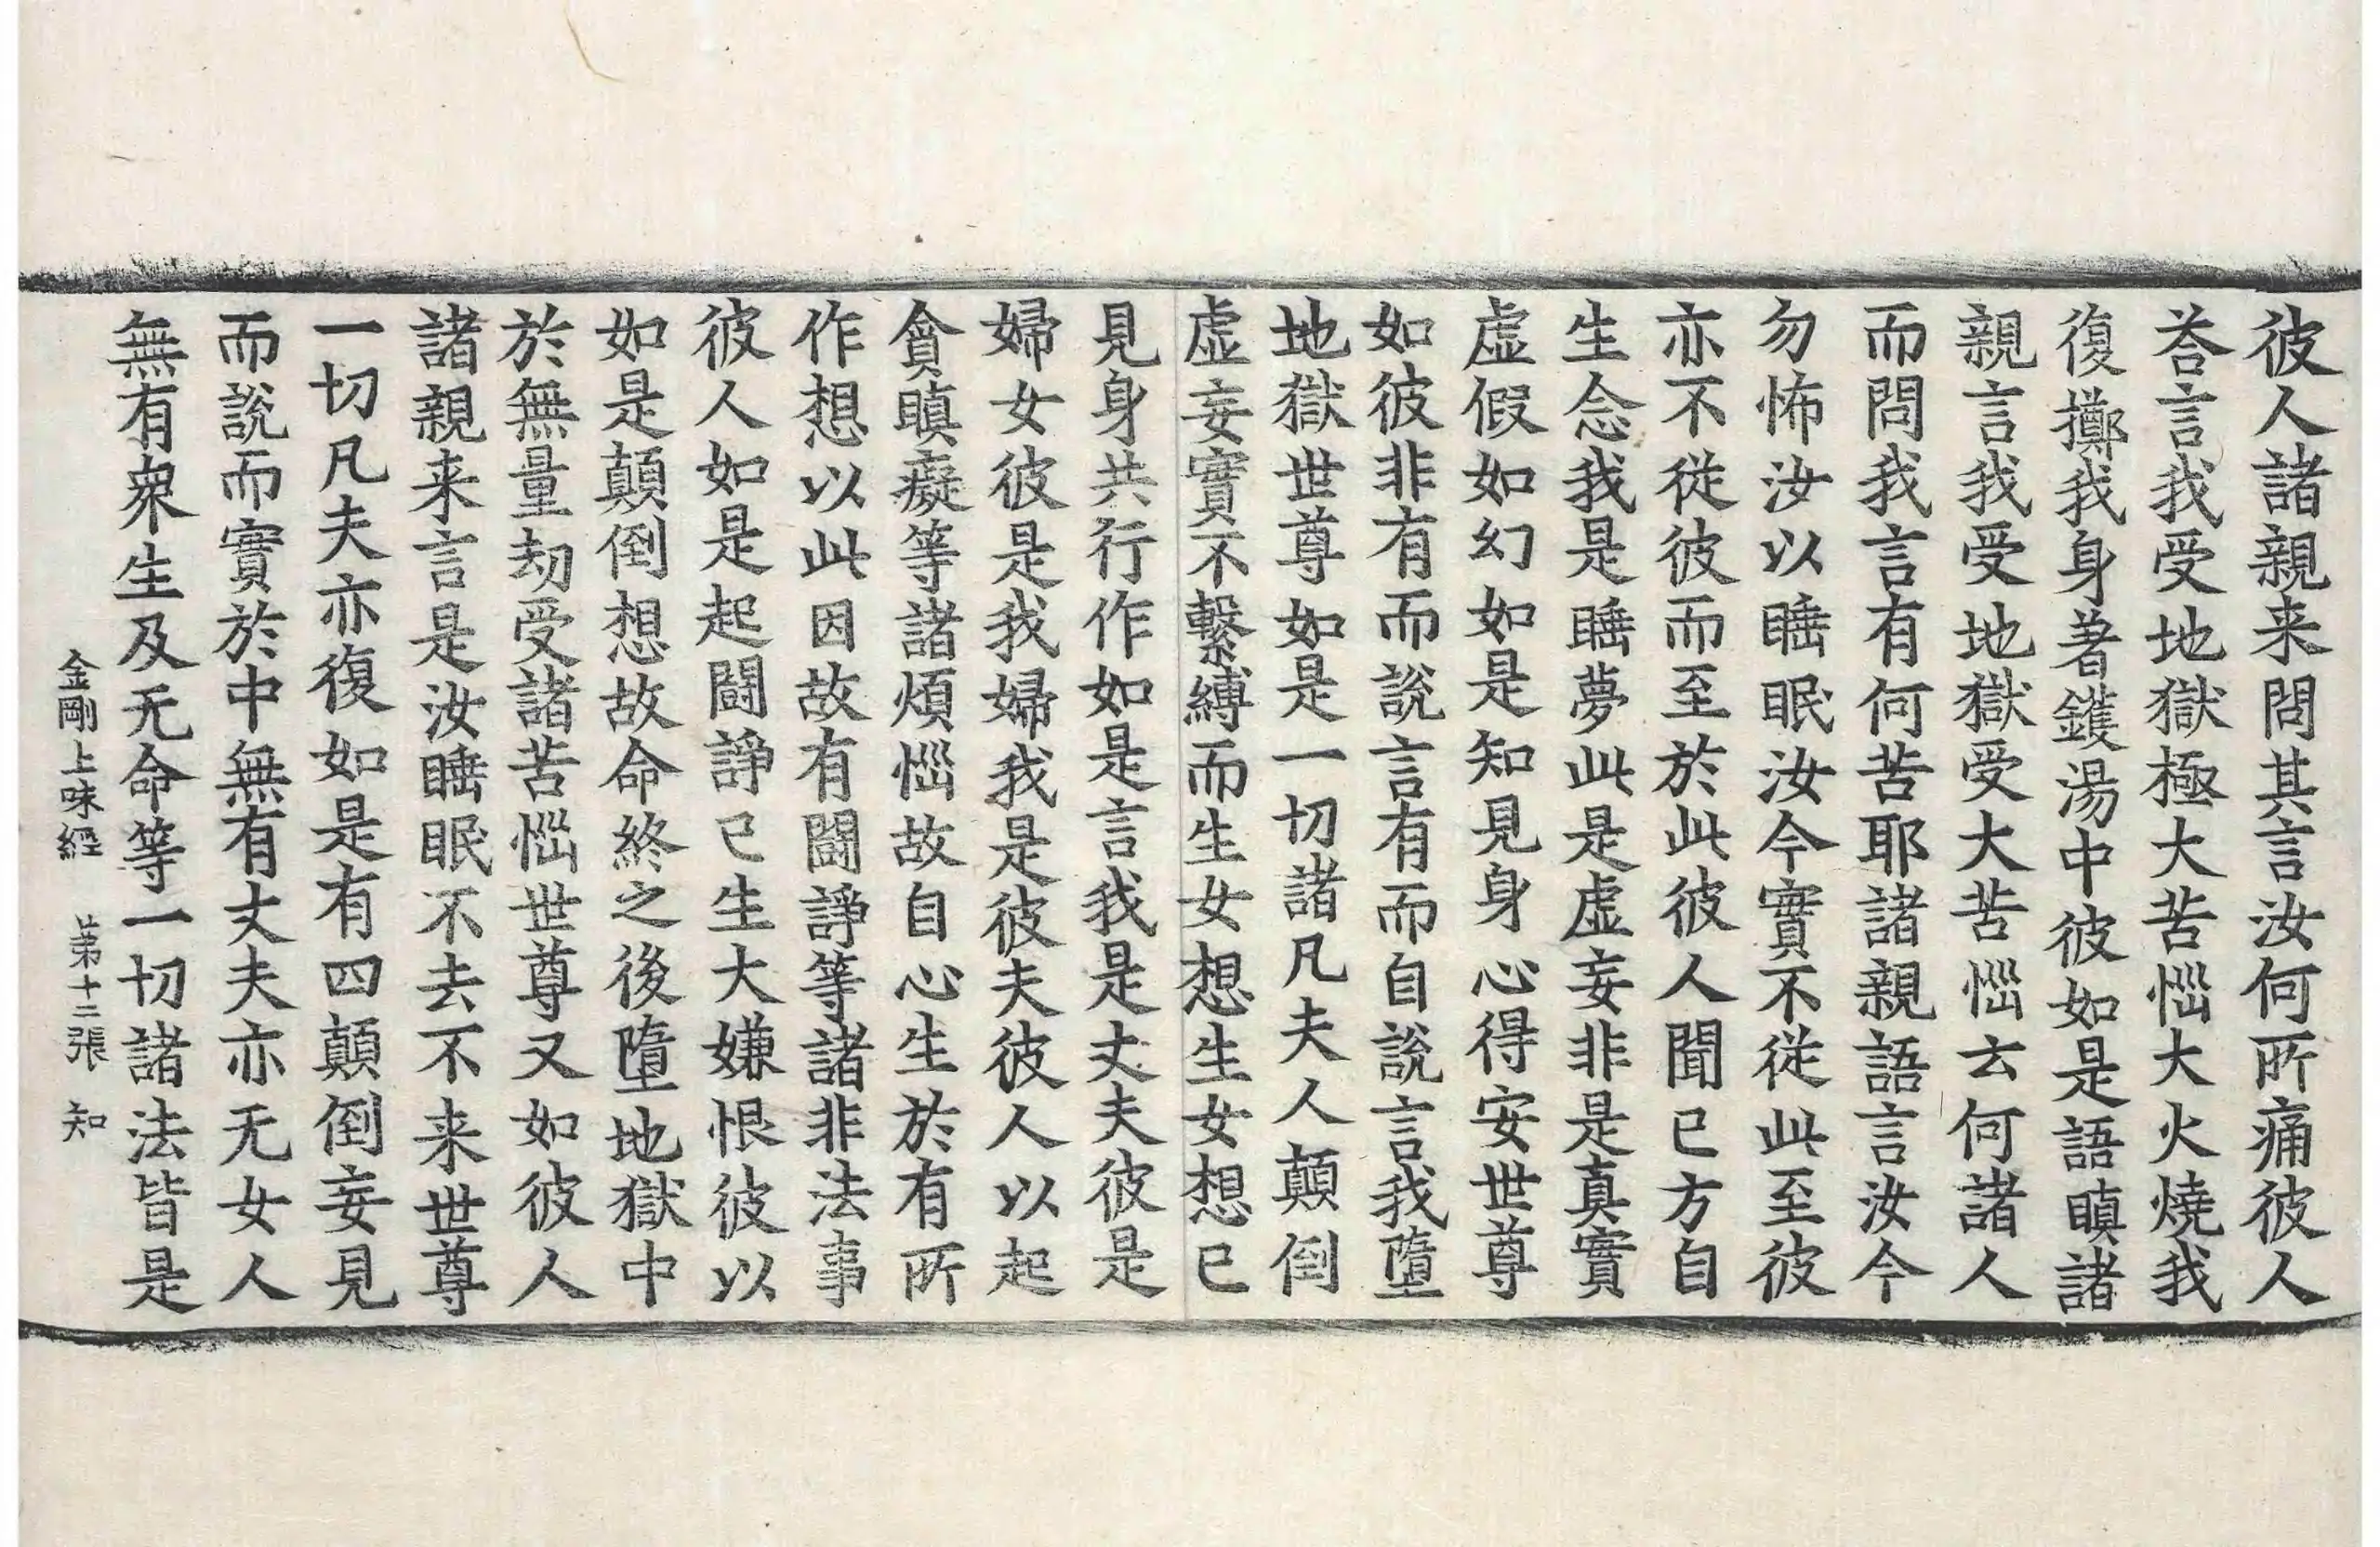 彼人諸親来問其言汝何所痛彼人
荅言我受地獄極大苦惱大火燒我
復擲我身著鑊湯中彼如是語瞋諸
親言我受地獄受大苦惱云何諸人
而問我言有何苦耶諸親語言汝今
勿怖汝以睡眠汝今實不從此至彼
亦不從彼而至於此彼人聞已方自
生念我是睡夢此是虛妄非是真實
虛假如幻如是知見身心得安世尊
如彼非有而說言有而自說言我墮
地獄世尊如是一切諸凡夫人顛倒
虛妄實不繫縛而生女想生女想已
見身共行作如是言我是丈夫彼是
婦女彼是我婦我是彼夫彼人以起
貪瞋癡等諸煩惱故自心生於有所
作想以此因故有鬪諍等諸非法事
彼人如是起鬪諍已生大嫌恨彼以
如是顛倒想故命終之後墮地獄中
於無量劫受諸苦惱世尊又如彼人
諸親来言是汝睡眠不去不来世尊
一切凡夫亦復如是有四顛倒妄見
而說而實於中無有丈夫亦无女人
無有衆生及无命等一切諸法皆是
金剛上味經 苐十二張 知